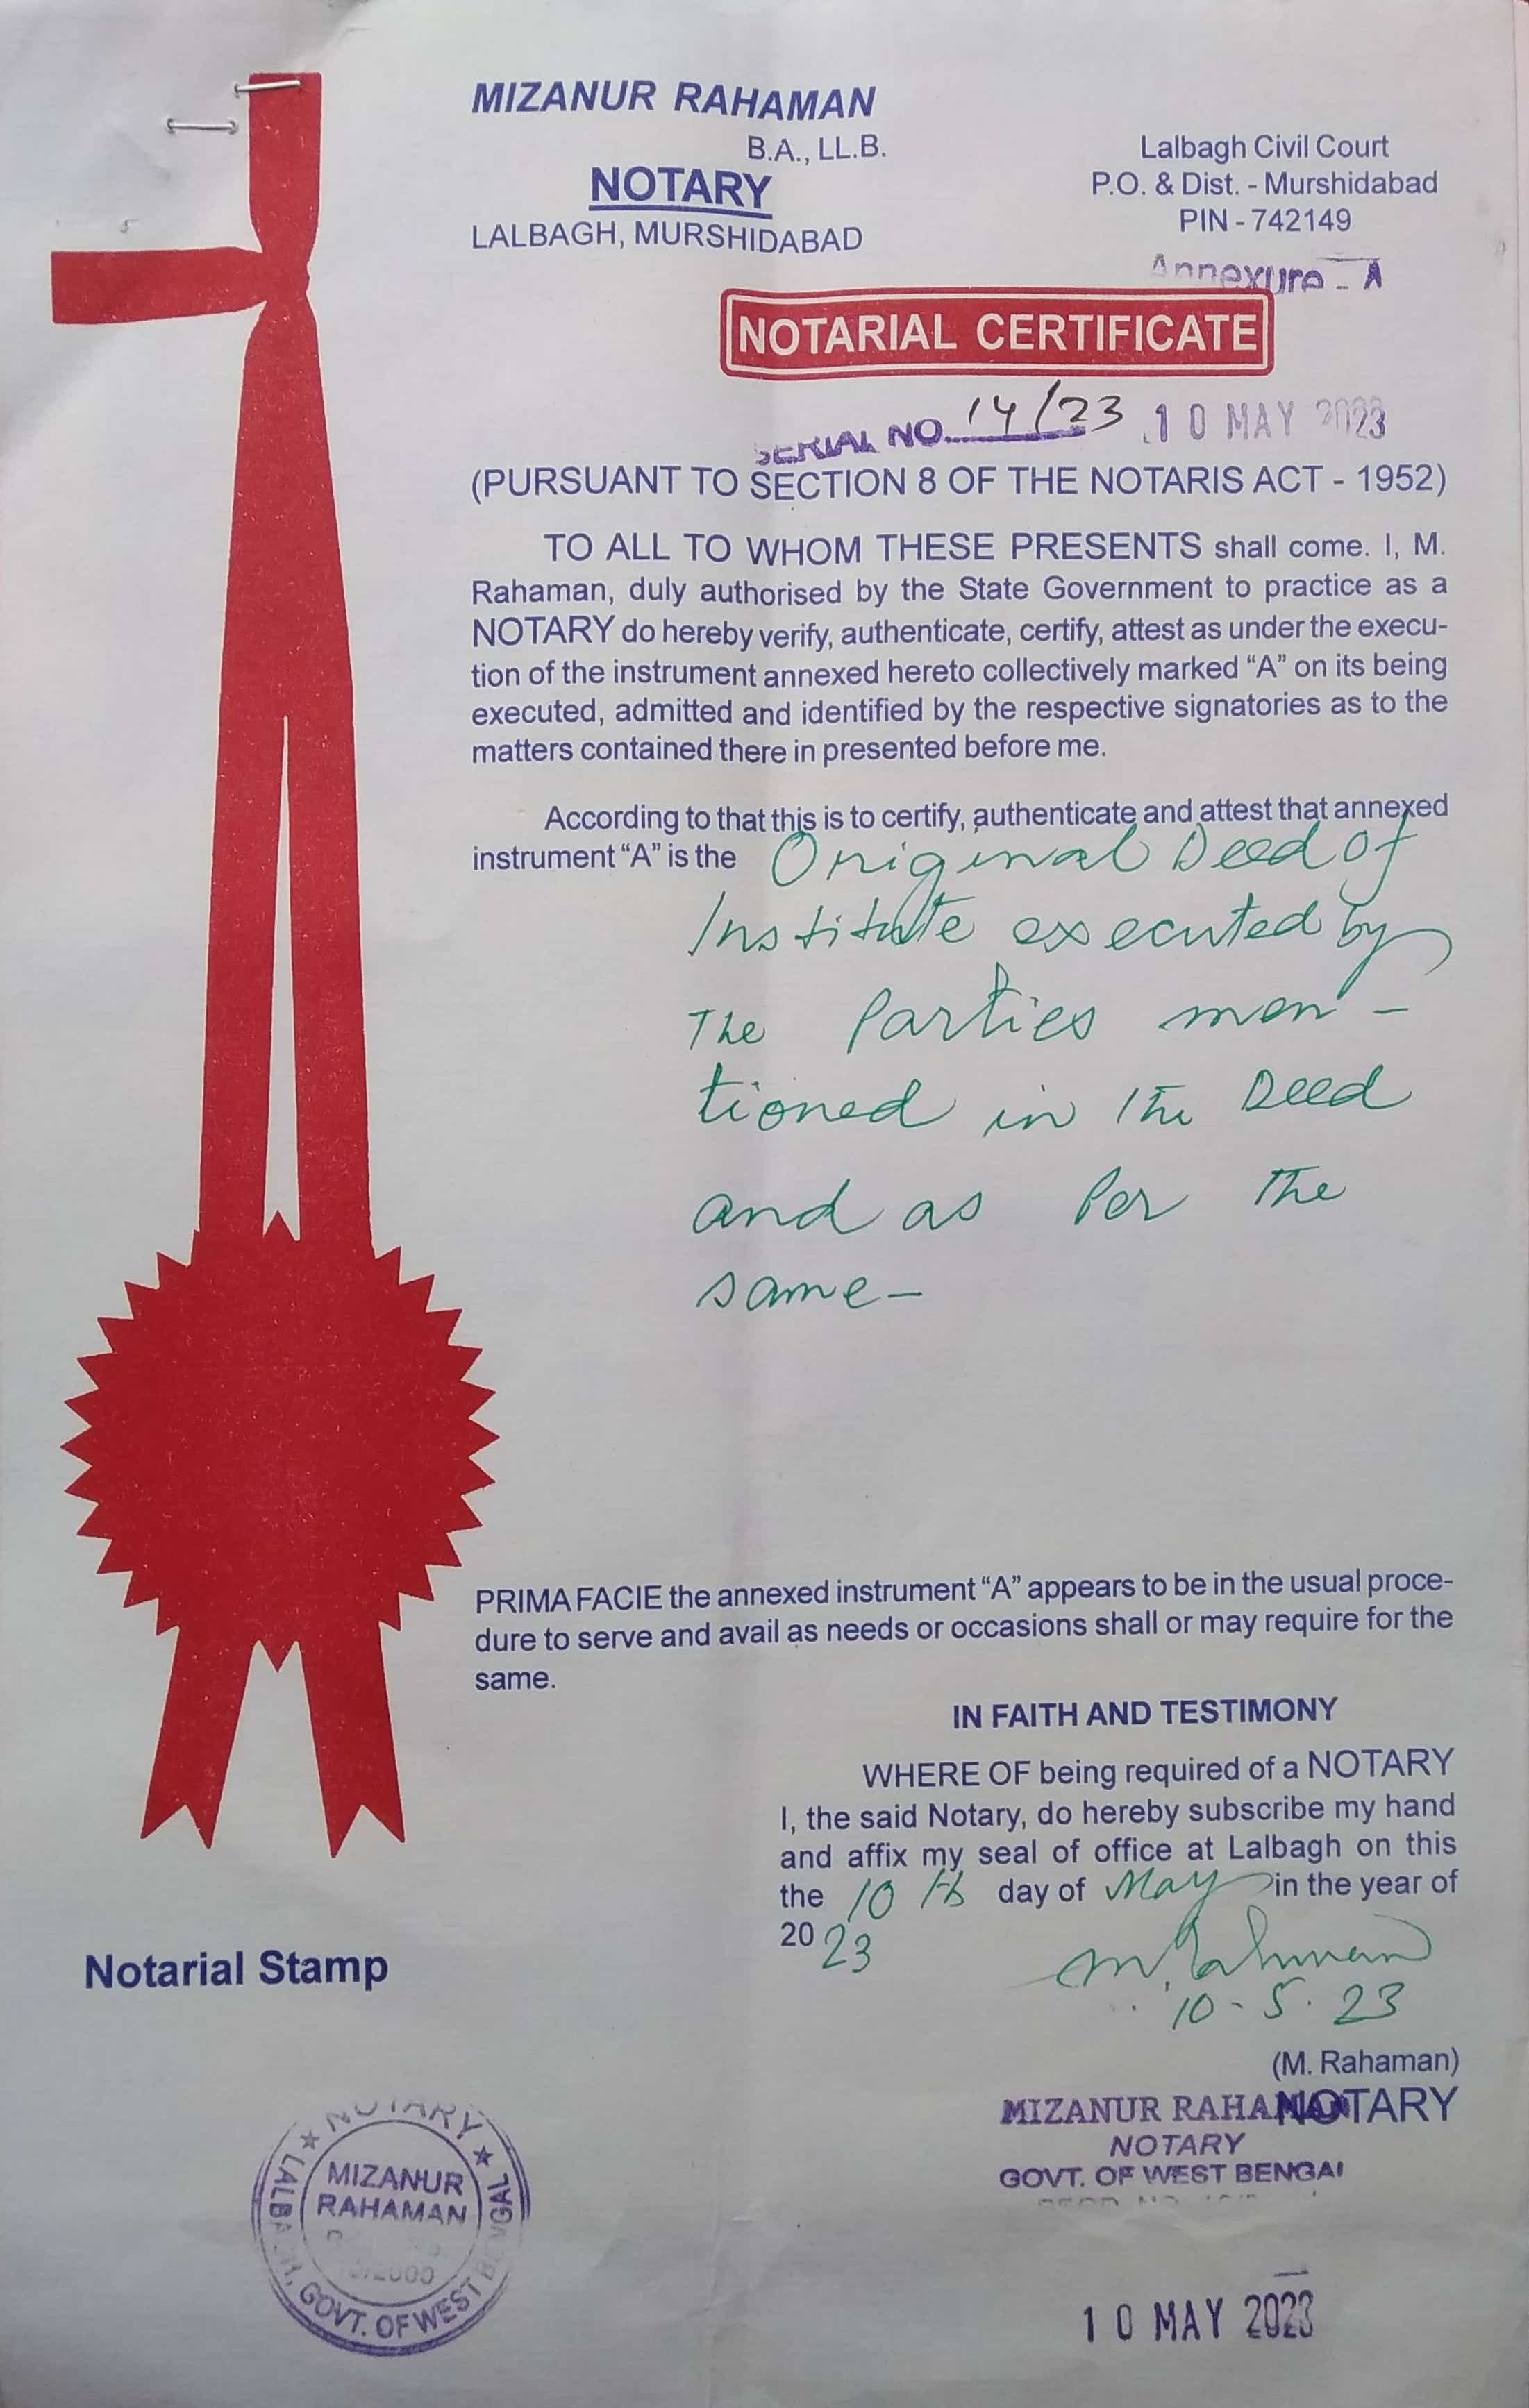 MIZANUR RAHAMAN
B.A., LL.B.
NOTARY
LALBAGH, MURSHIDABAD
Lalbagh Civil Court
P.O. & Dist. - Murshidabad
PIN - 742149
Annexure - A
NOTARIAL CERTIFICATE
SERIAL NO. 14/23 10 MAY 2023
(PURSUANT TO SECTION 8 OF THE NOTARIS ACT - 1952)
TO ALL TO WHOM THESE PRESENTS shall come. I, M.
Rahaman, duly authorised by the State Government to practice as a
NOTARY do hereby verify, authenticate, certify, attest as under the execu-
tion of the instrument annexed hereto collectively marked “A” on its being
executed, admitted and identified by the respective signatories as to the
matters contained there in presented before me.
According to that this is to certify, authenticate and attest that annexed
instrument “A” is the Original Deed of
Institute executed by
The Parties men -
tioned in the Deed
and as Per The
same -
PRIMA FACIE the annexed instrument “A” appears to be in the usual proce-
dure to serve and avail as needs or occasions shall or may require for the
same.
IN FAITH AND TESTIMONY
WHERE OF being required of a NOTARY
I, the said Notary, do hereby subscribe my hand
and affix my seal of office at Lalbagh on this
the 10 th day of May in the year of
2023
M. Rahaman
10-5.23
(M. Rahaman)
NOTARY
MIZANUR RAHAMAN
NOTARY
GOVT. OF WEST BENGAL
10 MAY 2023
Notarial Stamp
NOTARY
MIZANUR
RAHAMAN
LALBAGH, GOVT. OF WEST BENGAL